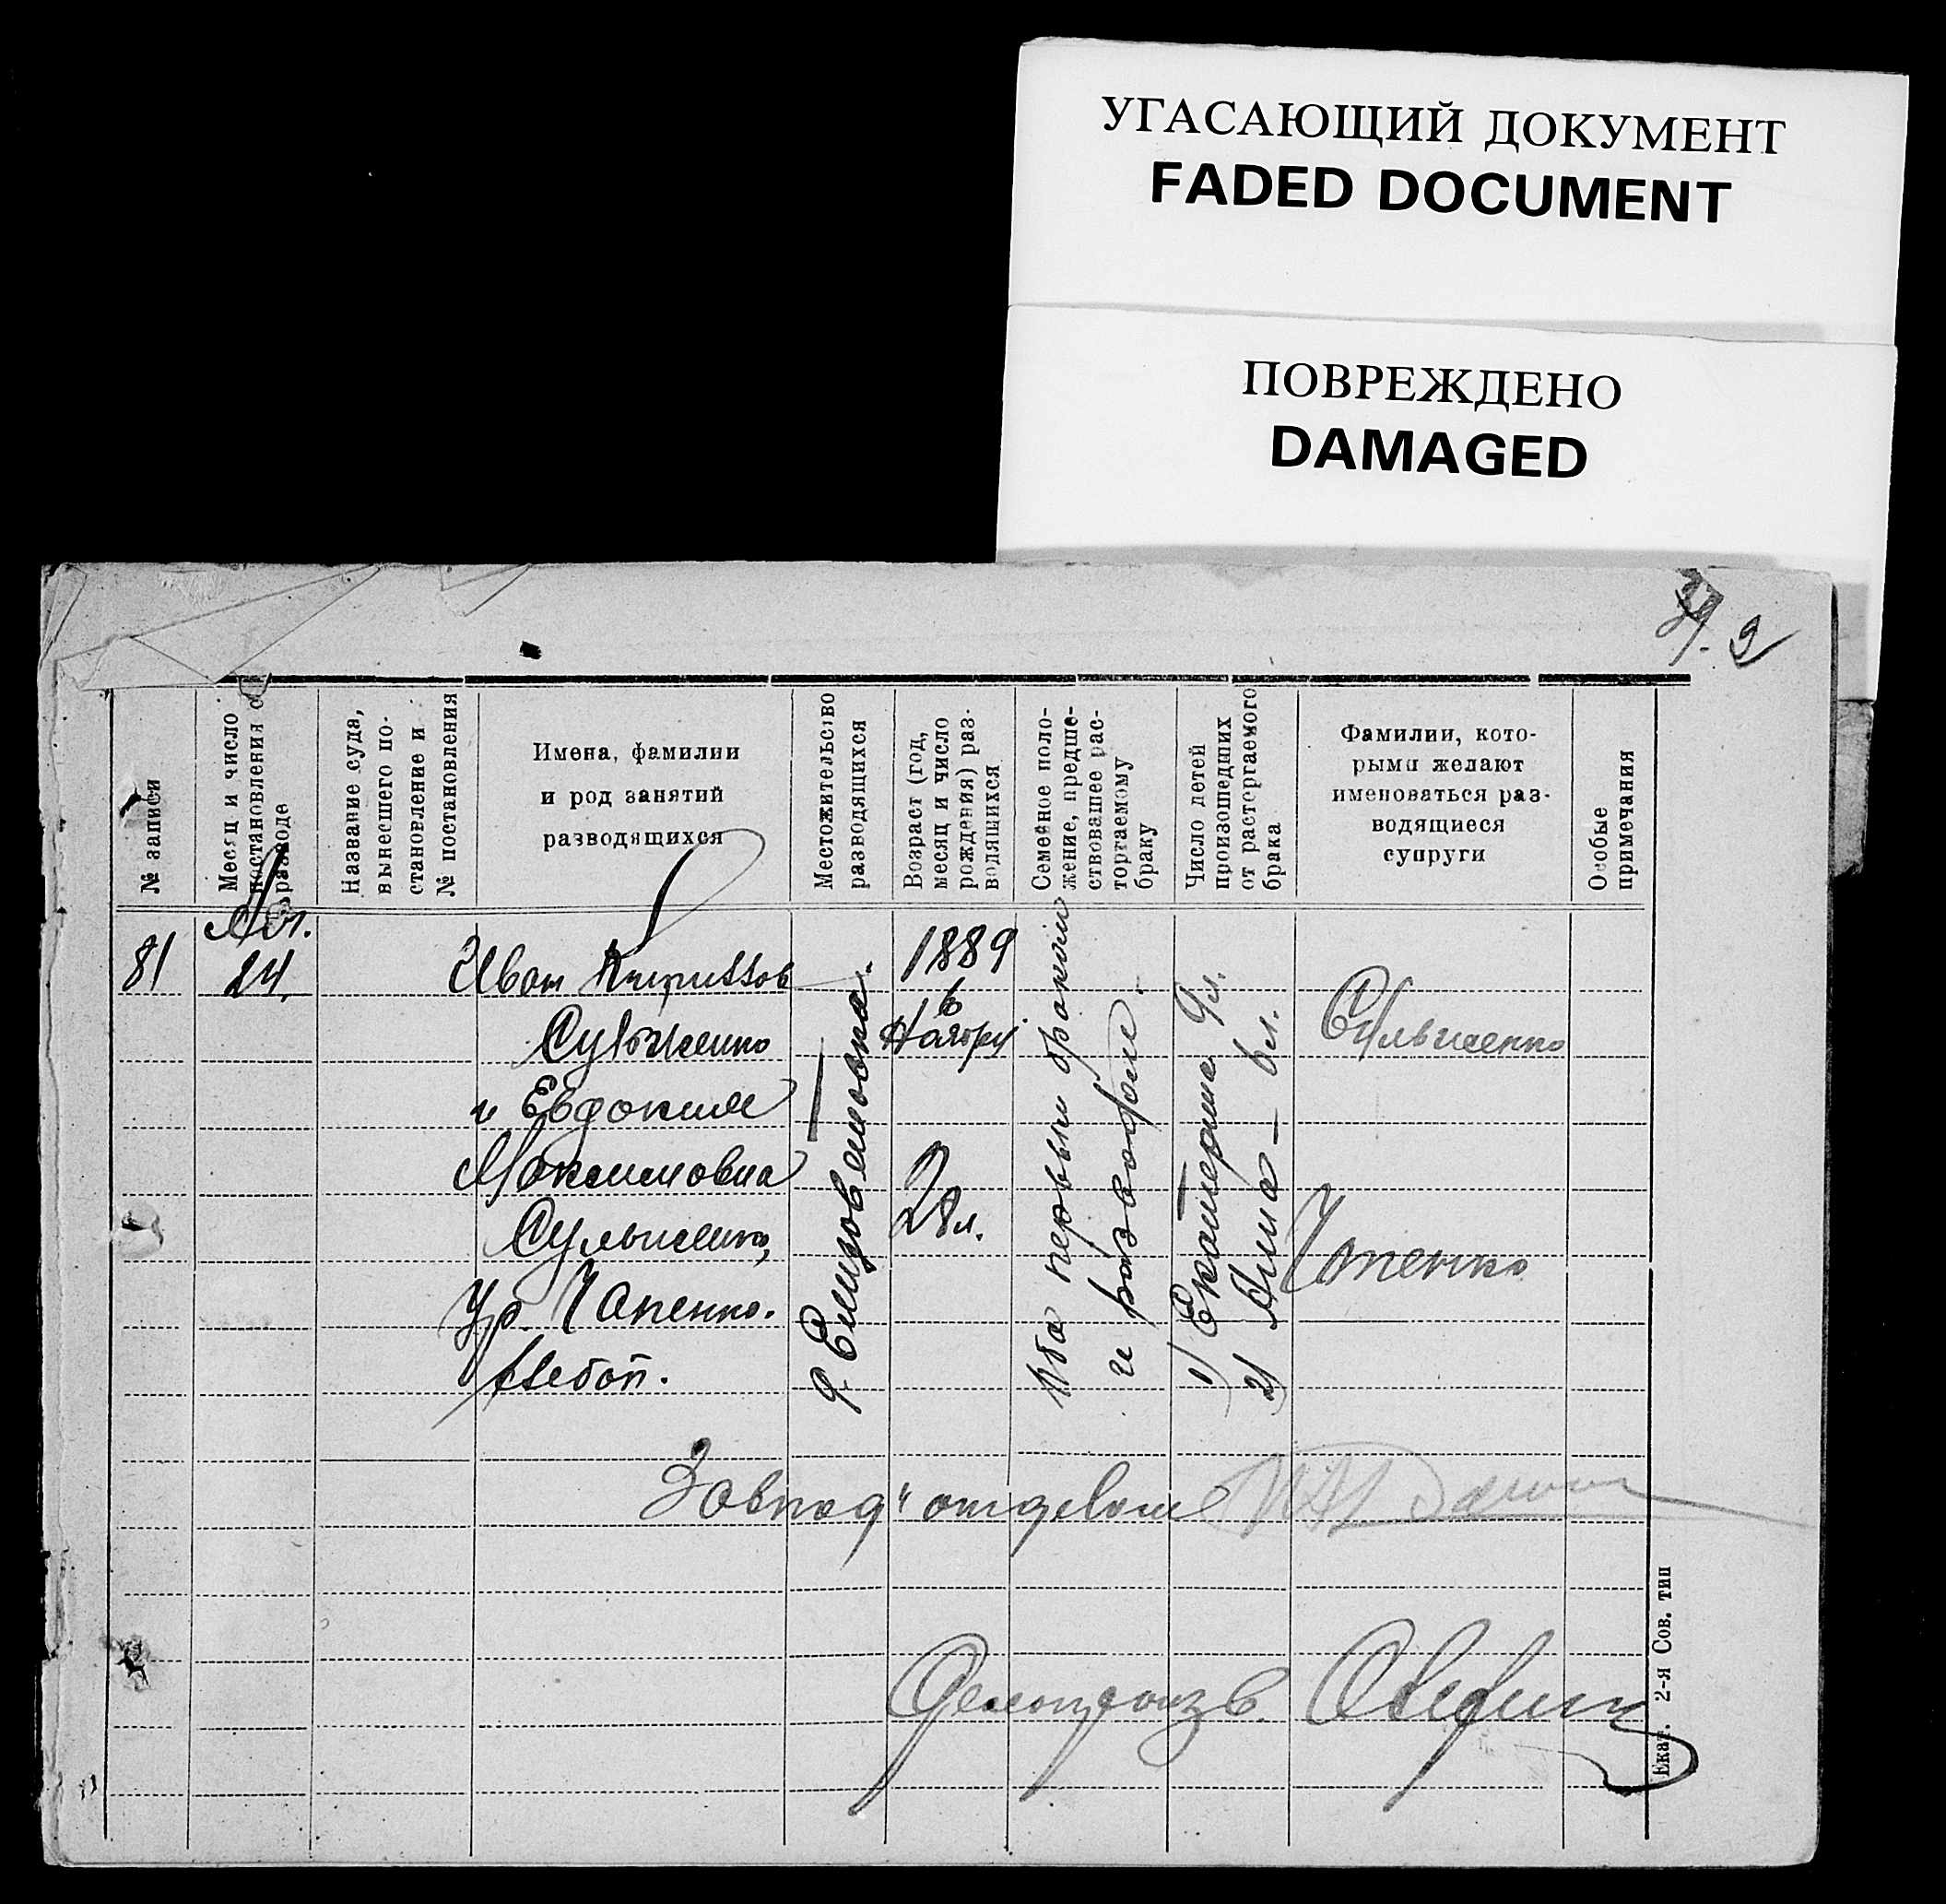 УГАСАЮЩИЙ ДОКУМЕНТ
FADED DOCUMENT
ПОВРЕЖДЕНО
DAMAGED
9
№ записи
Месяц и число
постановления о
разводе
Название суда,
вынесшего по-
становление и
№ постановления
Имена, фамилии
и род занятий
разводящихся
Местожительсво
разводящихся
Возраст (год,
месяц и число
рождения) раз-
водящихся
Семейное поло-
жение, предше-
ствовавшее рас-
торгаемому
браку
Число детей
произошедших
от расторгаемого
брака
Фамилии, кото-
рыми желают
именоваться раз-
водящиеся
супруги
Особые
примечания
81
24.
Иван Кириллов
Сулженко
и Евдокия
Максимовна
Сульженко,
Ур. Чапенко.
хлебоп.
1889
6
Ноября
28 л.
Оба первым браком
и разводом.
1) Екатерина 9 л.
2) Анна — 6 л.
Сульженко
Чапенко
Завпод" отделом
Делопроизв.
Екат. 2-я Сов. тип